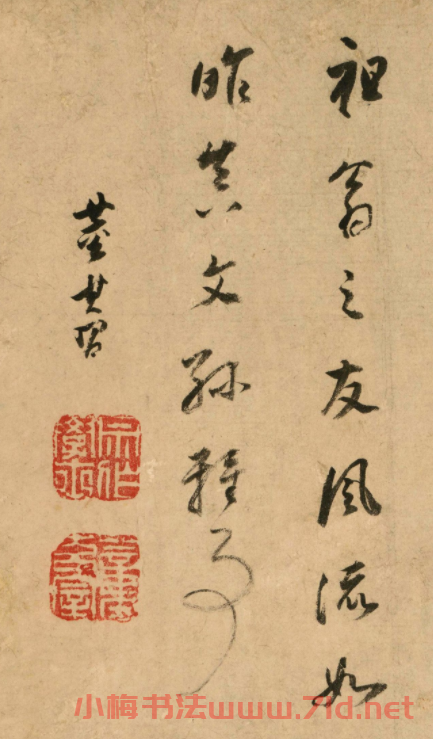 祖翁之友風流如
昨真文孫雅事
董其昌
小梅书法www.71d.net